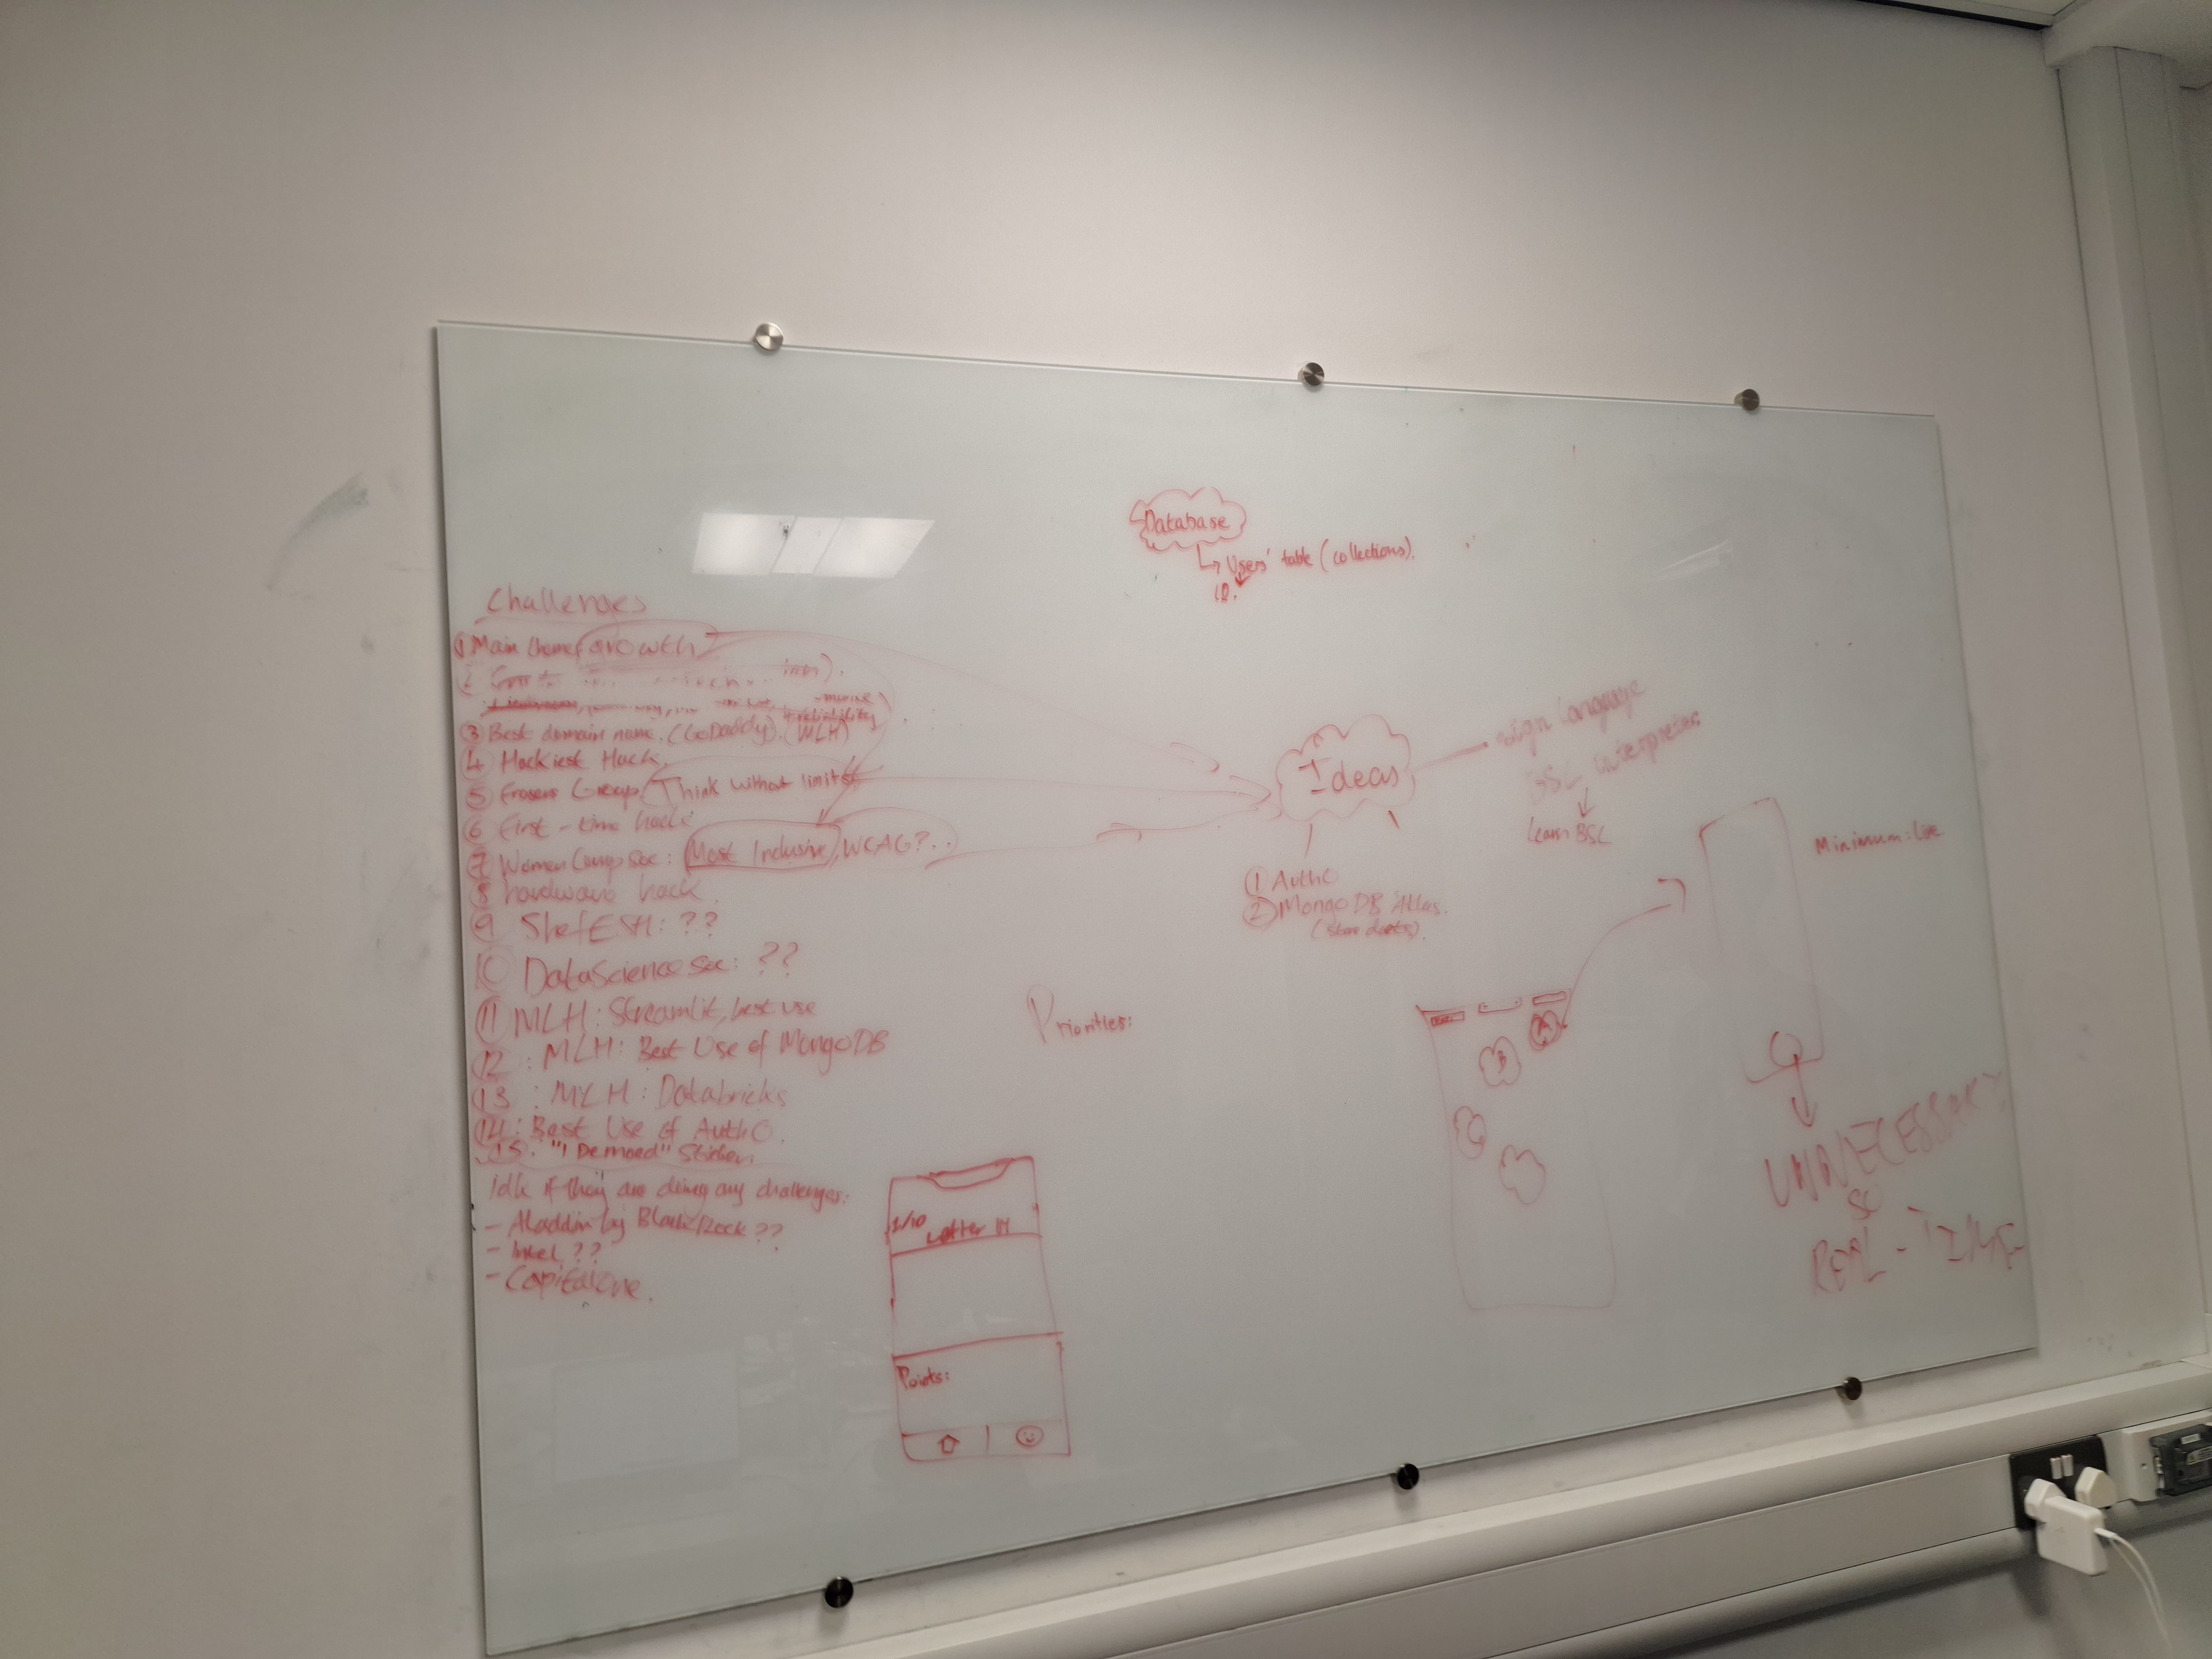 Database
↳ Users' table (collections).
ID.
Challenges
① Main theme: growth
③ Best domain name. (GoDaddy). (MLH)
④ Hackiest Hack.
⑤ Frasers Group: Think without limits
⑥ First-time hack
⑦ WomenCompSoc: Most Inclusive, WCAG?..
⑧ hardware hack.
⑨ ShefESH: ??
⑩ DataScienceSoc: ??
⑪ MLH: Streamlit, best use
⑫: MLH: Best Use of MongoDB
⑬: MLH: Databricks
⑭: Best Use of Auth0.
15. "I Demoed" Sticker.
idk if they are doing any challenges:
- Aladdin by BlackRock??
- Intel??
- CapitalOne.
Ideas
sign language
BSL interpreter
learn BSL
① Auth0
② MongoDB Atlas.
(store data).
Minimum:
Priorities:
B
A
UNNECESSARY
SO
REAL-TIME
1/10
Letter
Points: